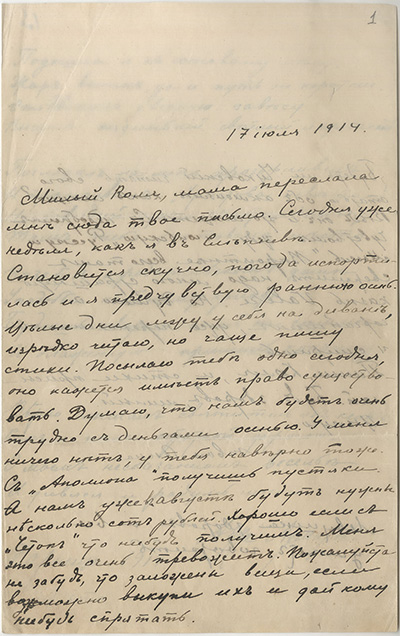 1
17 іюля 1914.
Милый Коля, мама переслала
мнѣ сюда твое письмо. Сегодня уже
недѣля, какъ я въ Слѣпневѣ.
Становится скучно, погода испорти-
лась и я предчувствую раннюю осень.
Цѣлые дни лежу у себя на диванѣ,
изрѣдко читаю, но чаще пишу
стихи. Посылаю тебѣ одно сегодня,
оно кажется имѣетъ право существо-
вать. Думаю, что намъ будетъ очень
трудно съ деньгами осенью. У меня
ничего нѣтъ, у тебя навѣрно тоже.
Съ „Аполлона" получишь пустяки.
А намъ уже въ августѣ будутъ нужны
нѣсколько сотъ рублей. Хорошо если съ
„Четокъ" что нибудь получимъ. Меня
это все очень тревожитъ. Пожалуйста
не забудь, что заложены вещи, если
возможно выкупи ихъ и дай кому
нибудь спрятать.